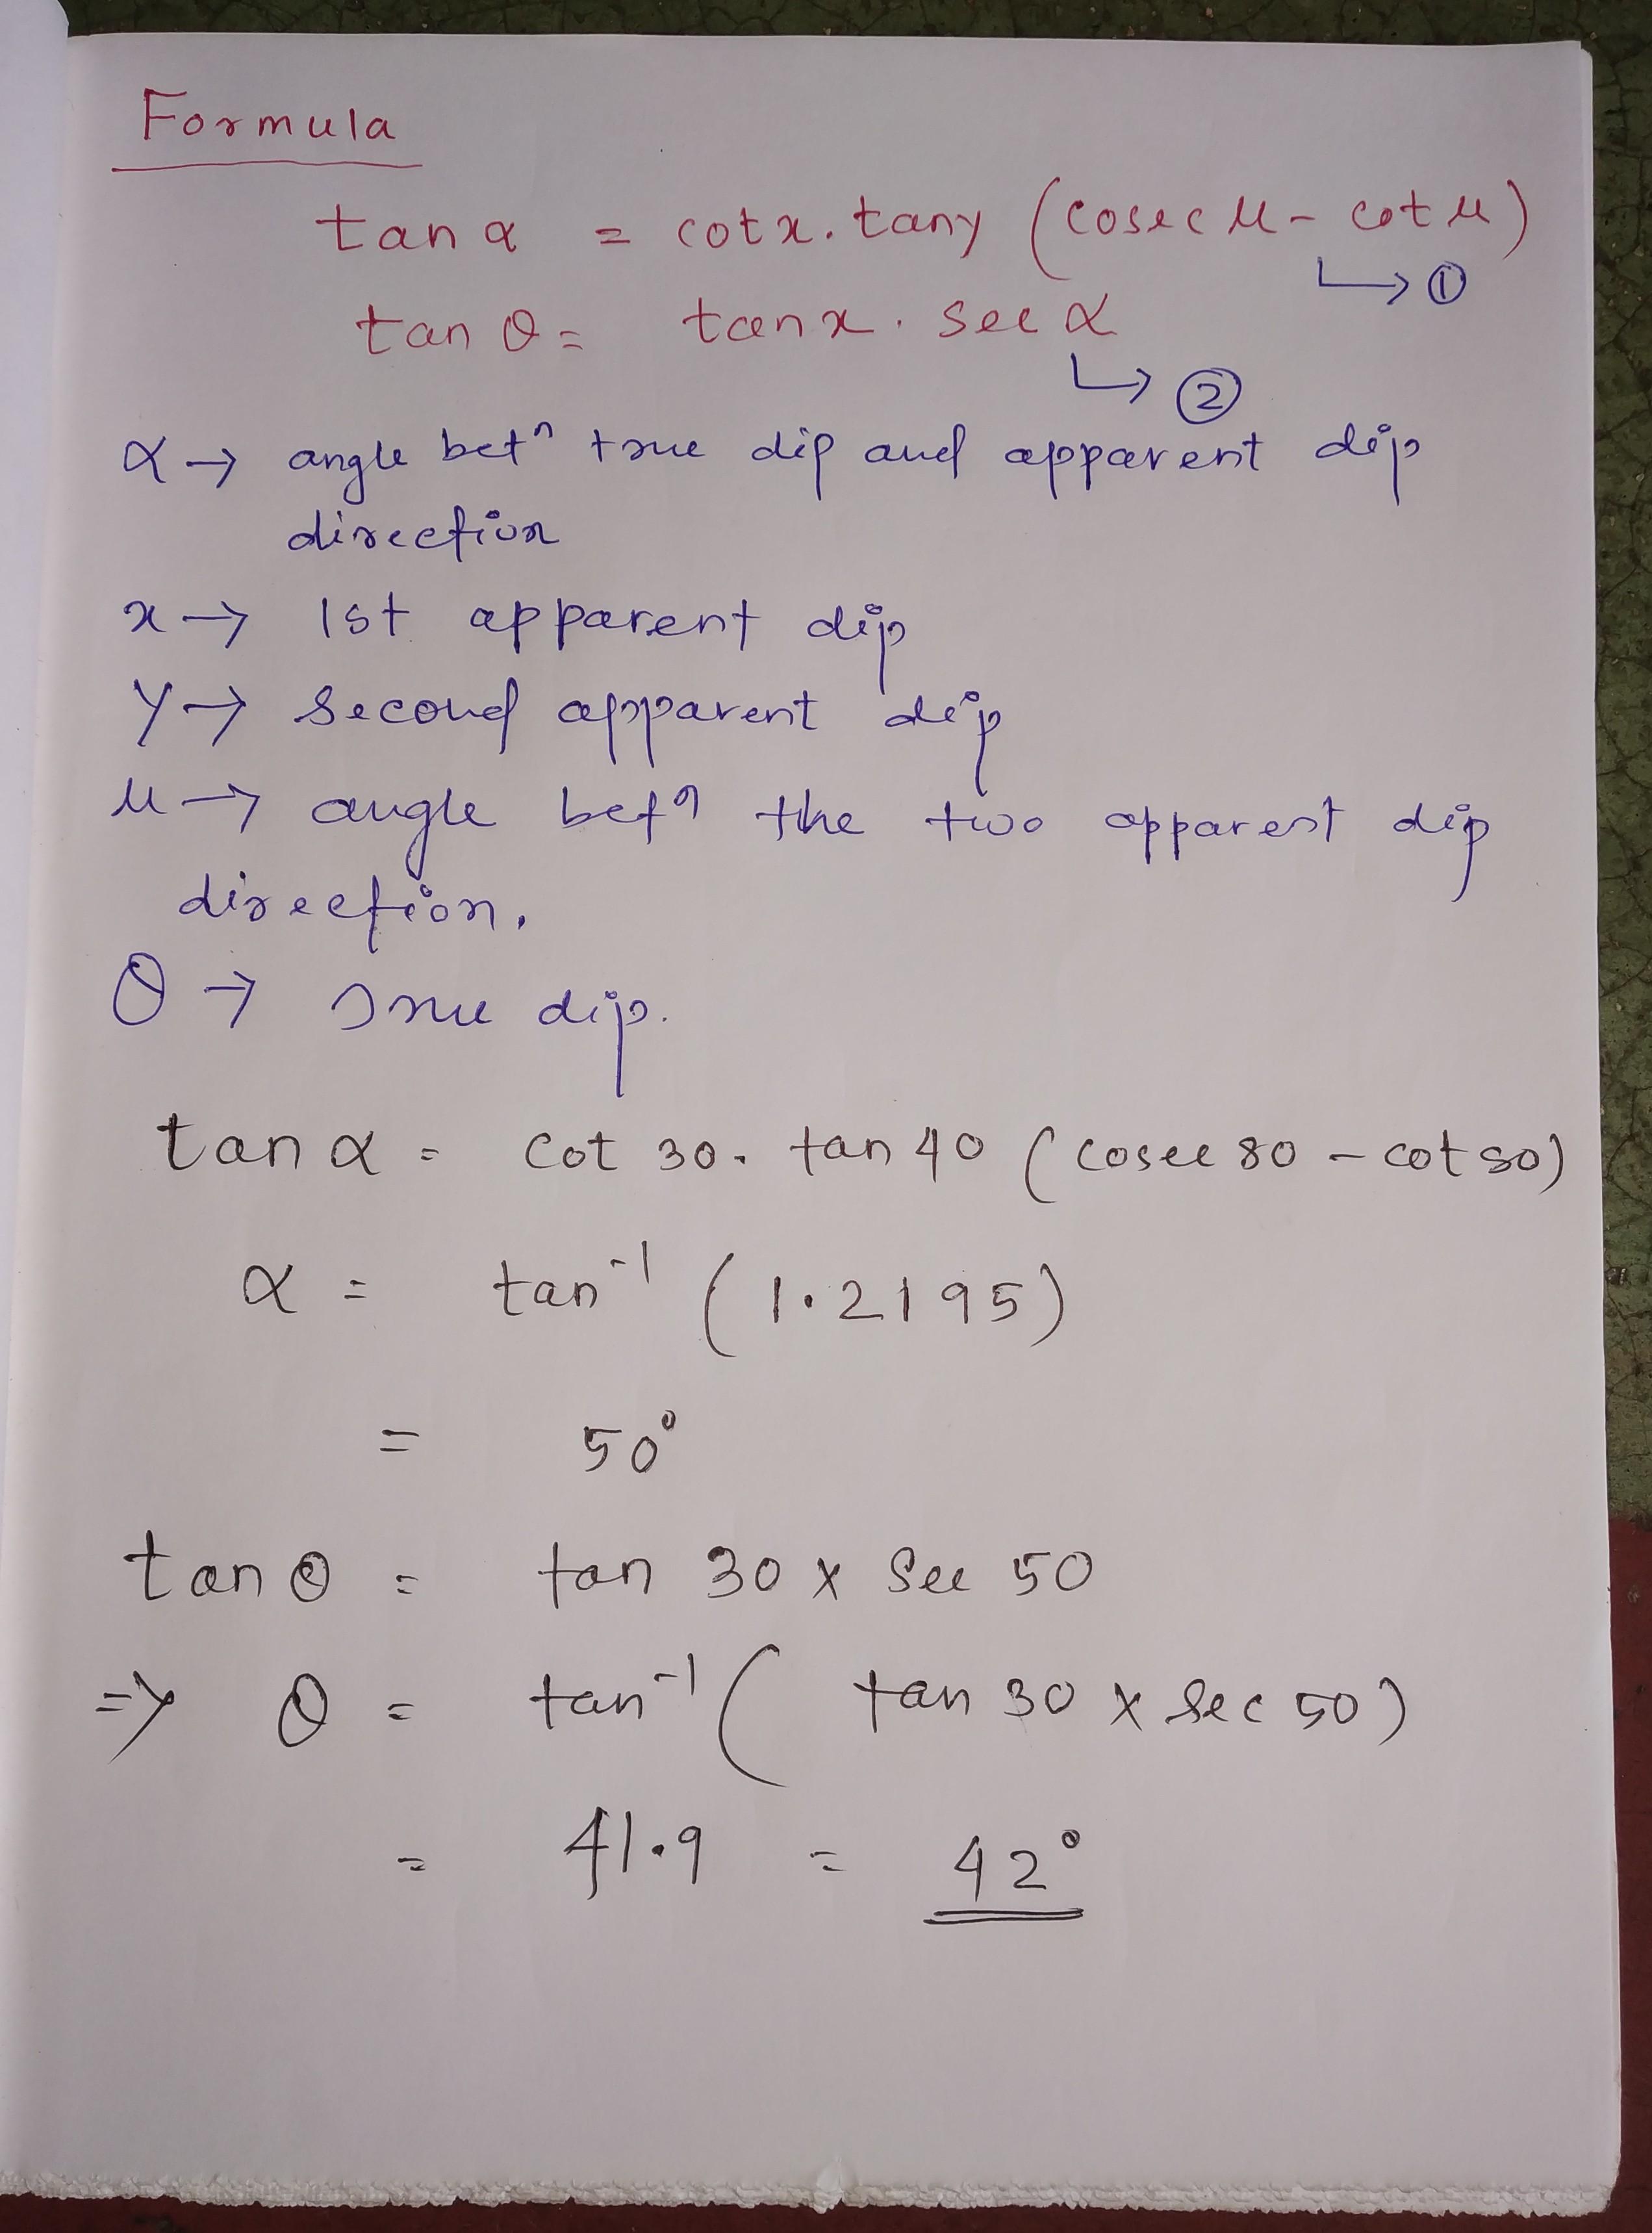 Formula
tan α = cot x. tan y (cosec μ - cot μ)
↳ ①
tan θ = tan x . sec α
↳ ②
α → angle betⁿ true dip and apparent dip
direction
x → 1st apparent dip
y → second apparent dip
μ → angle betⁿ the two apparent dip
direction.
θ → True dip.
tan α = cot 30. tan 40 (cosec 80 - cot 80)
α = tan⁻¹ (1.2195)
= 50°
tan θ = tan 30 x sec 50
=> θ = tan⁻¹ ( tan 30 x sec 50)
= 41.9 = 42°